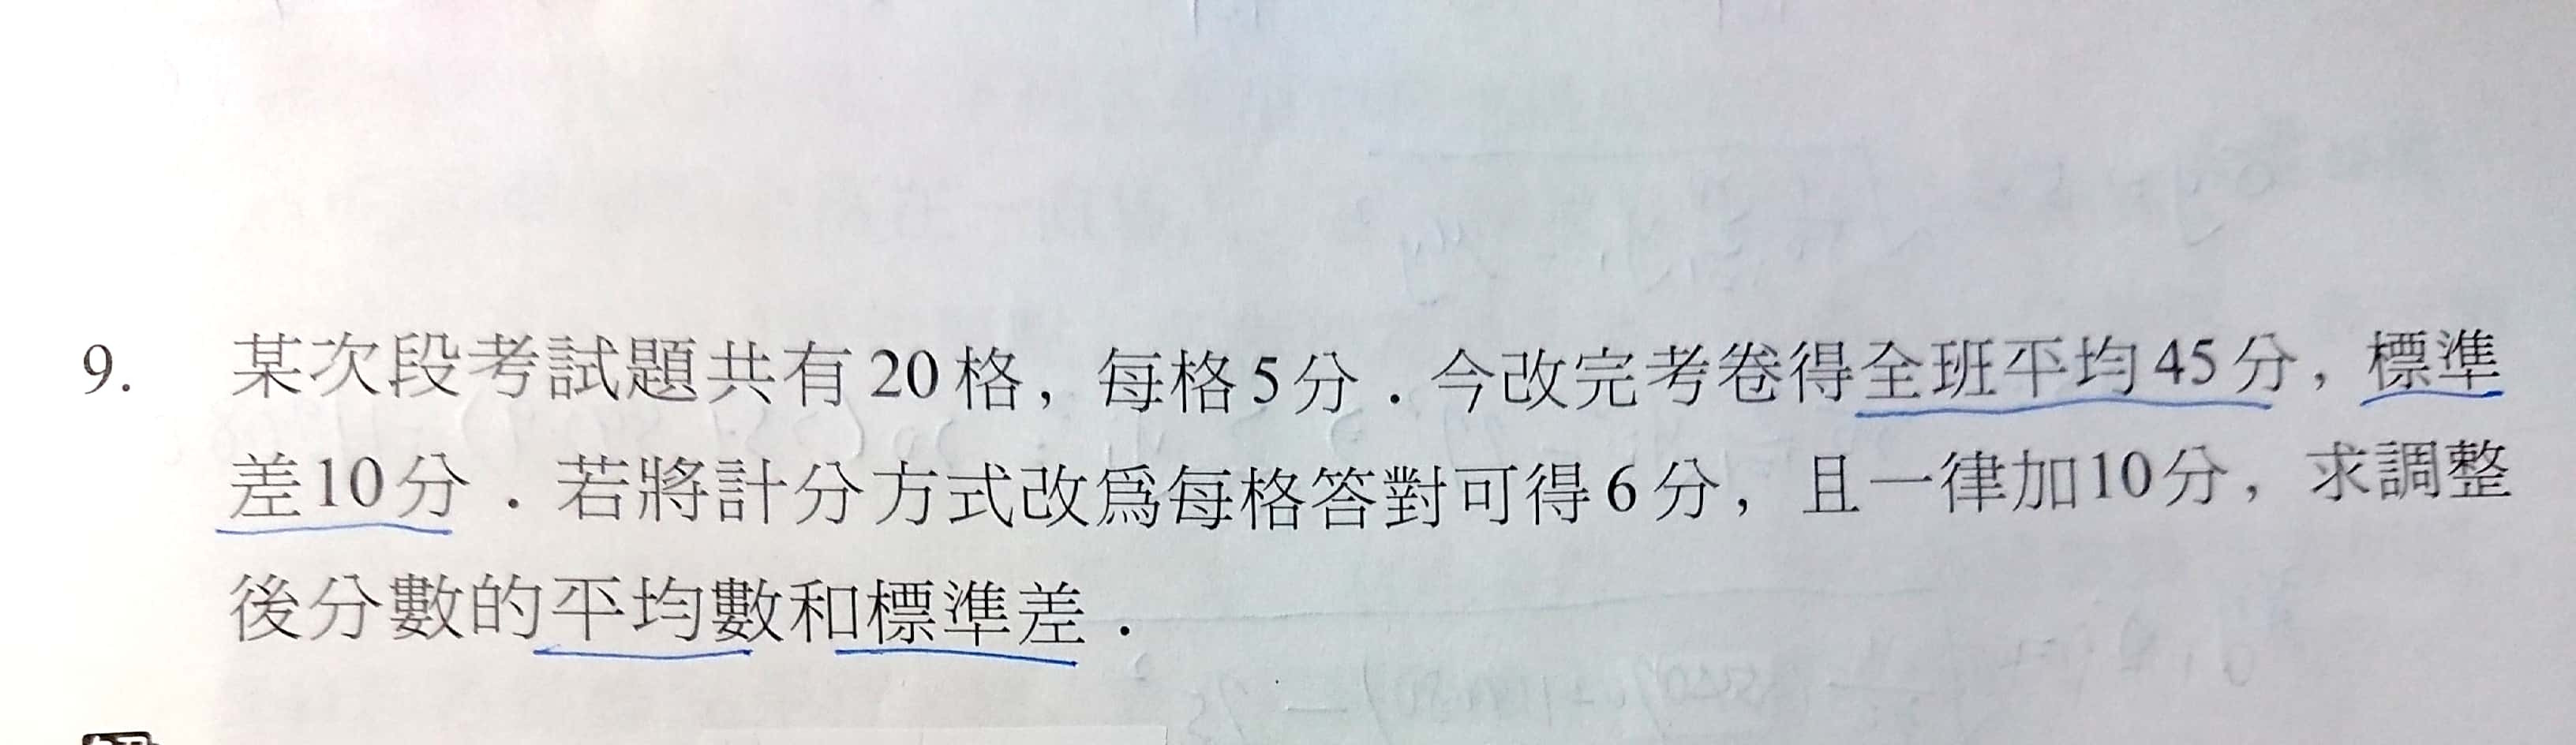 9. 某次段考試題共有20格，每格5分．今改完考卷得全班平均45分，標準
差10分．若將計分方式改爲每格答對可得6分，且一律加10分，求調整
後分數的平均數和標準差．